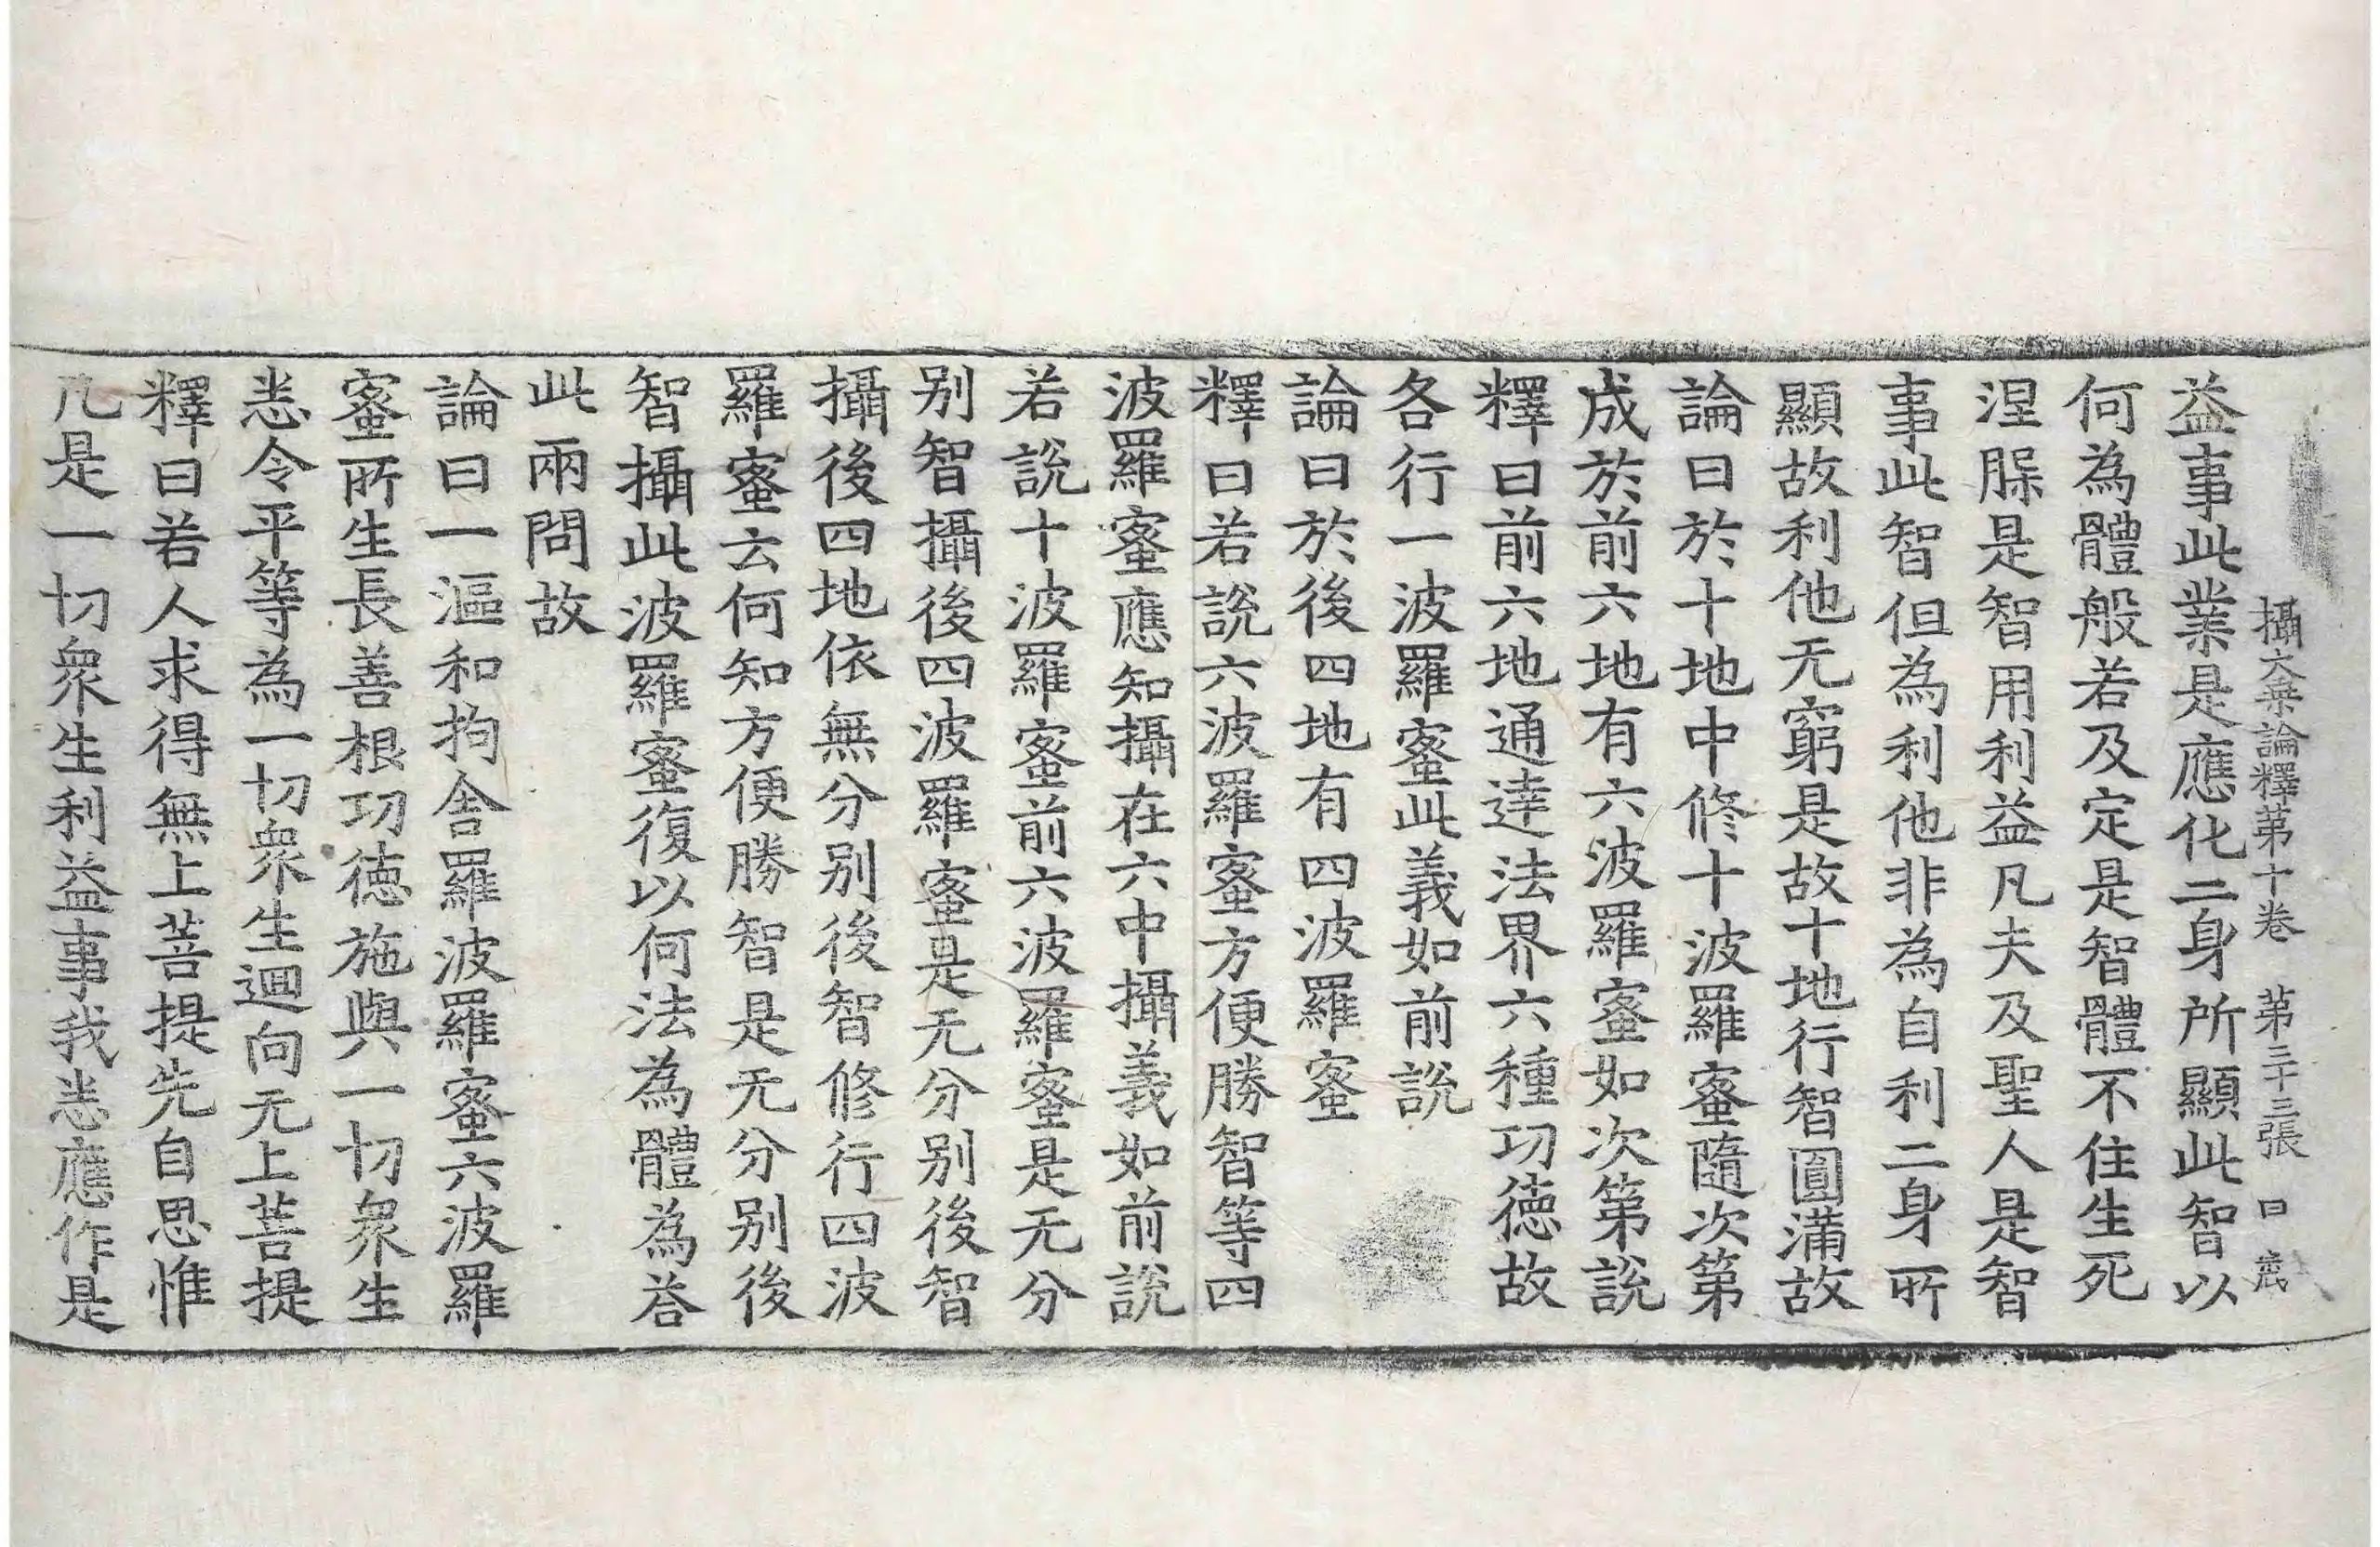 攝大乗論釋苐十卷　苐三十三張　曰
益事此業是應化二身所顯此智以
何為體般若及定是智體不住生死
涅𦛚是智用利益凡夫及聖人是智
事此智但為利他非為自利二身所
顯故利他无窮是故十地行智圓滿故
論曰於十地中修十波羅蜜隨次第
成於前六地有六波羅蜜如次第說
釋曰前六地通達法界六種功德故
各行一波羅蜜此義如前說
論曰於後四地有四波羅蜜
釋曰若說六波羅蜜方便勝智等四
波羅蜜應知攝在六中攝義如前說
若說十波羅蜜前六波羅蜜是无分
别智攝後四波羅蜜是无分别後智
攝後四地依無分别後智修行四波
羅蜜云何知方便勝智是无分别後
智攝此波羅蜜復以何法為體為荅
此兩問故
論曰一漚和拘舍羅波羅蜜六波羅
蜜所生長善根功德施與一切衆生
悉令平等為一切衆生迴向无上菩提
釋曰若人求得無上菩提先自思惟
凡是一切衆生利益事我悉應作是